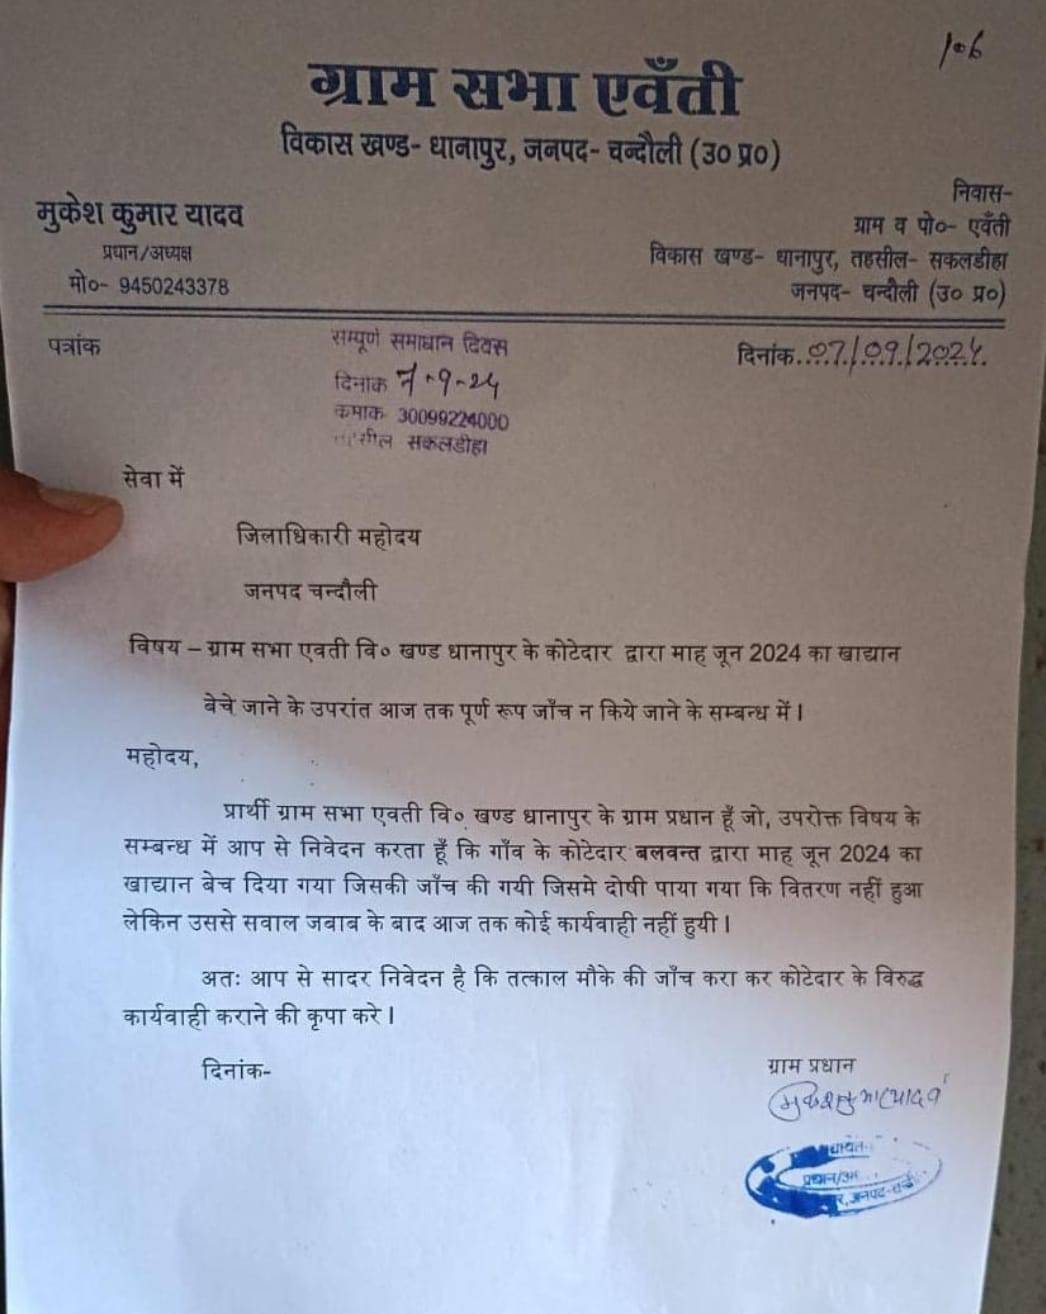 106
ग्राम सभा एवँती
विकास खण्ड- धानापुर, जनपद- चन्दौली (उ० प्र०)
मुकेश कुमार यादव
प्रधान/अध्यक्ष
मो०- 9450243378
निवास-
ग्राम व पो०- एवँती
विकास खण्ड- धानापुर, तहसील- सकलडीहा
जनपद- चन्दौली (उ० प्र०)
पत्रांक
सम्पूर्ण समाधान दिवस
दिनांक 7-9-24
क्रमांक 30099224000
सकलडीहा
दिनांक 07/09/2024
सेवा में
जिलाधिकारी महोदय
जनपद चन्दौली
विषय – ग्राम सभा एवती वि० खण्ड धानापुर के कोटेदार द्वारा माह जून 2024 का खाद्यान
बेचे जाने के उपरांत आज तक पूर्ण रूप जाँच न किये जाने के सम्बन्ध में।
महोदय,
प्रार्थी ग्राम सभा एवती वि० खण्ड धानापुर के ग्राम प्रधान हूँ जो, उपरोक्त विषय के
सम्बन्ध में आप से निवेदन करता हूँ कि गाँव के कोटेदार बलवन्त द्वारा माह जून 2024 का
खाद्यान बेच दिया गया जिसकी जाँच की गयी जिसमे दोषी पाया गया कि वितरण नहीं हुआ
लेकिन उससे सवाल जबाब के बाद आज तक कोई कार्यवाही नहीं हुयी।
अतः आप से सादर निवेदन है कि तत्काल मौके की जाँच करा कर कोटेदार के विरुद्ध
कार्यवाही कराने की कृपा करे।
दिनांक-
ग्राम प्रधान
मुकेश कुमार यादव